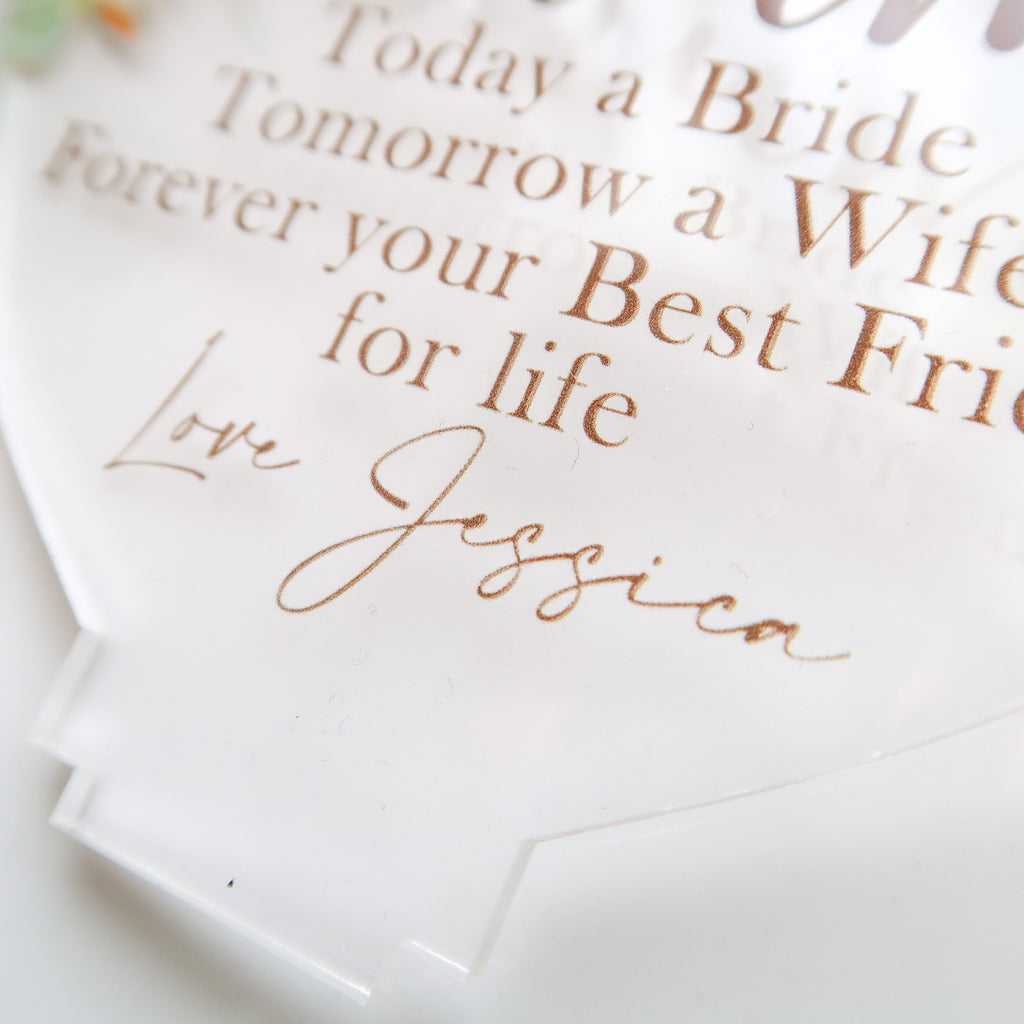 Today a Bride
Tomorrow a Wife
Forever your Best Frie
for life
Love Jessica